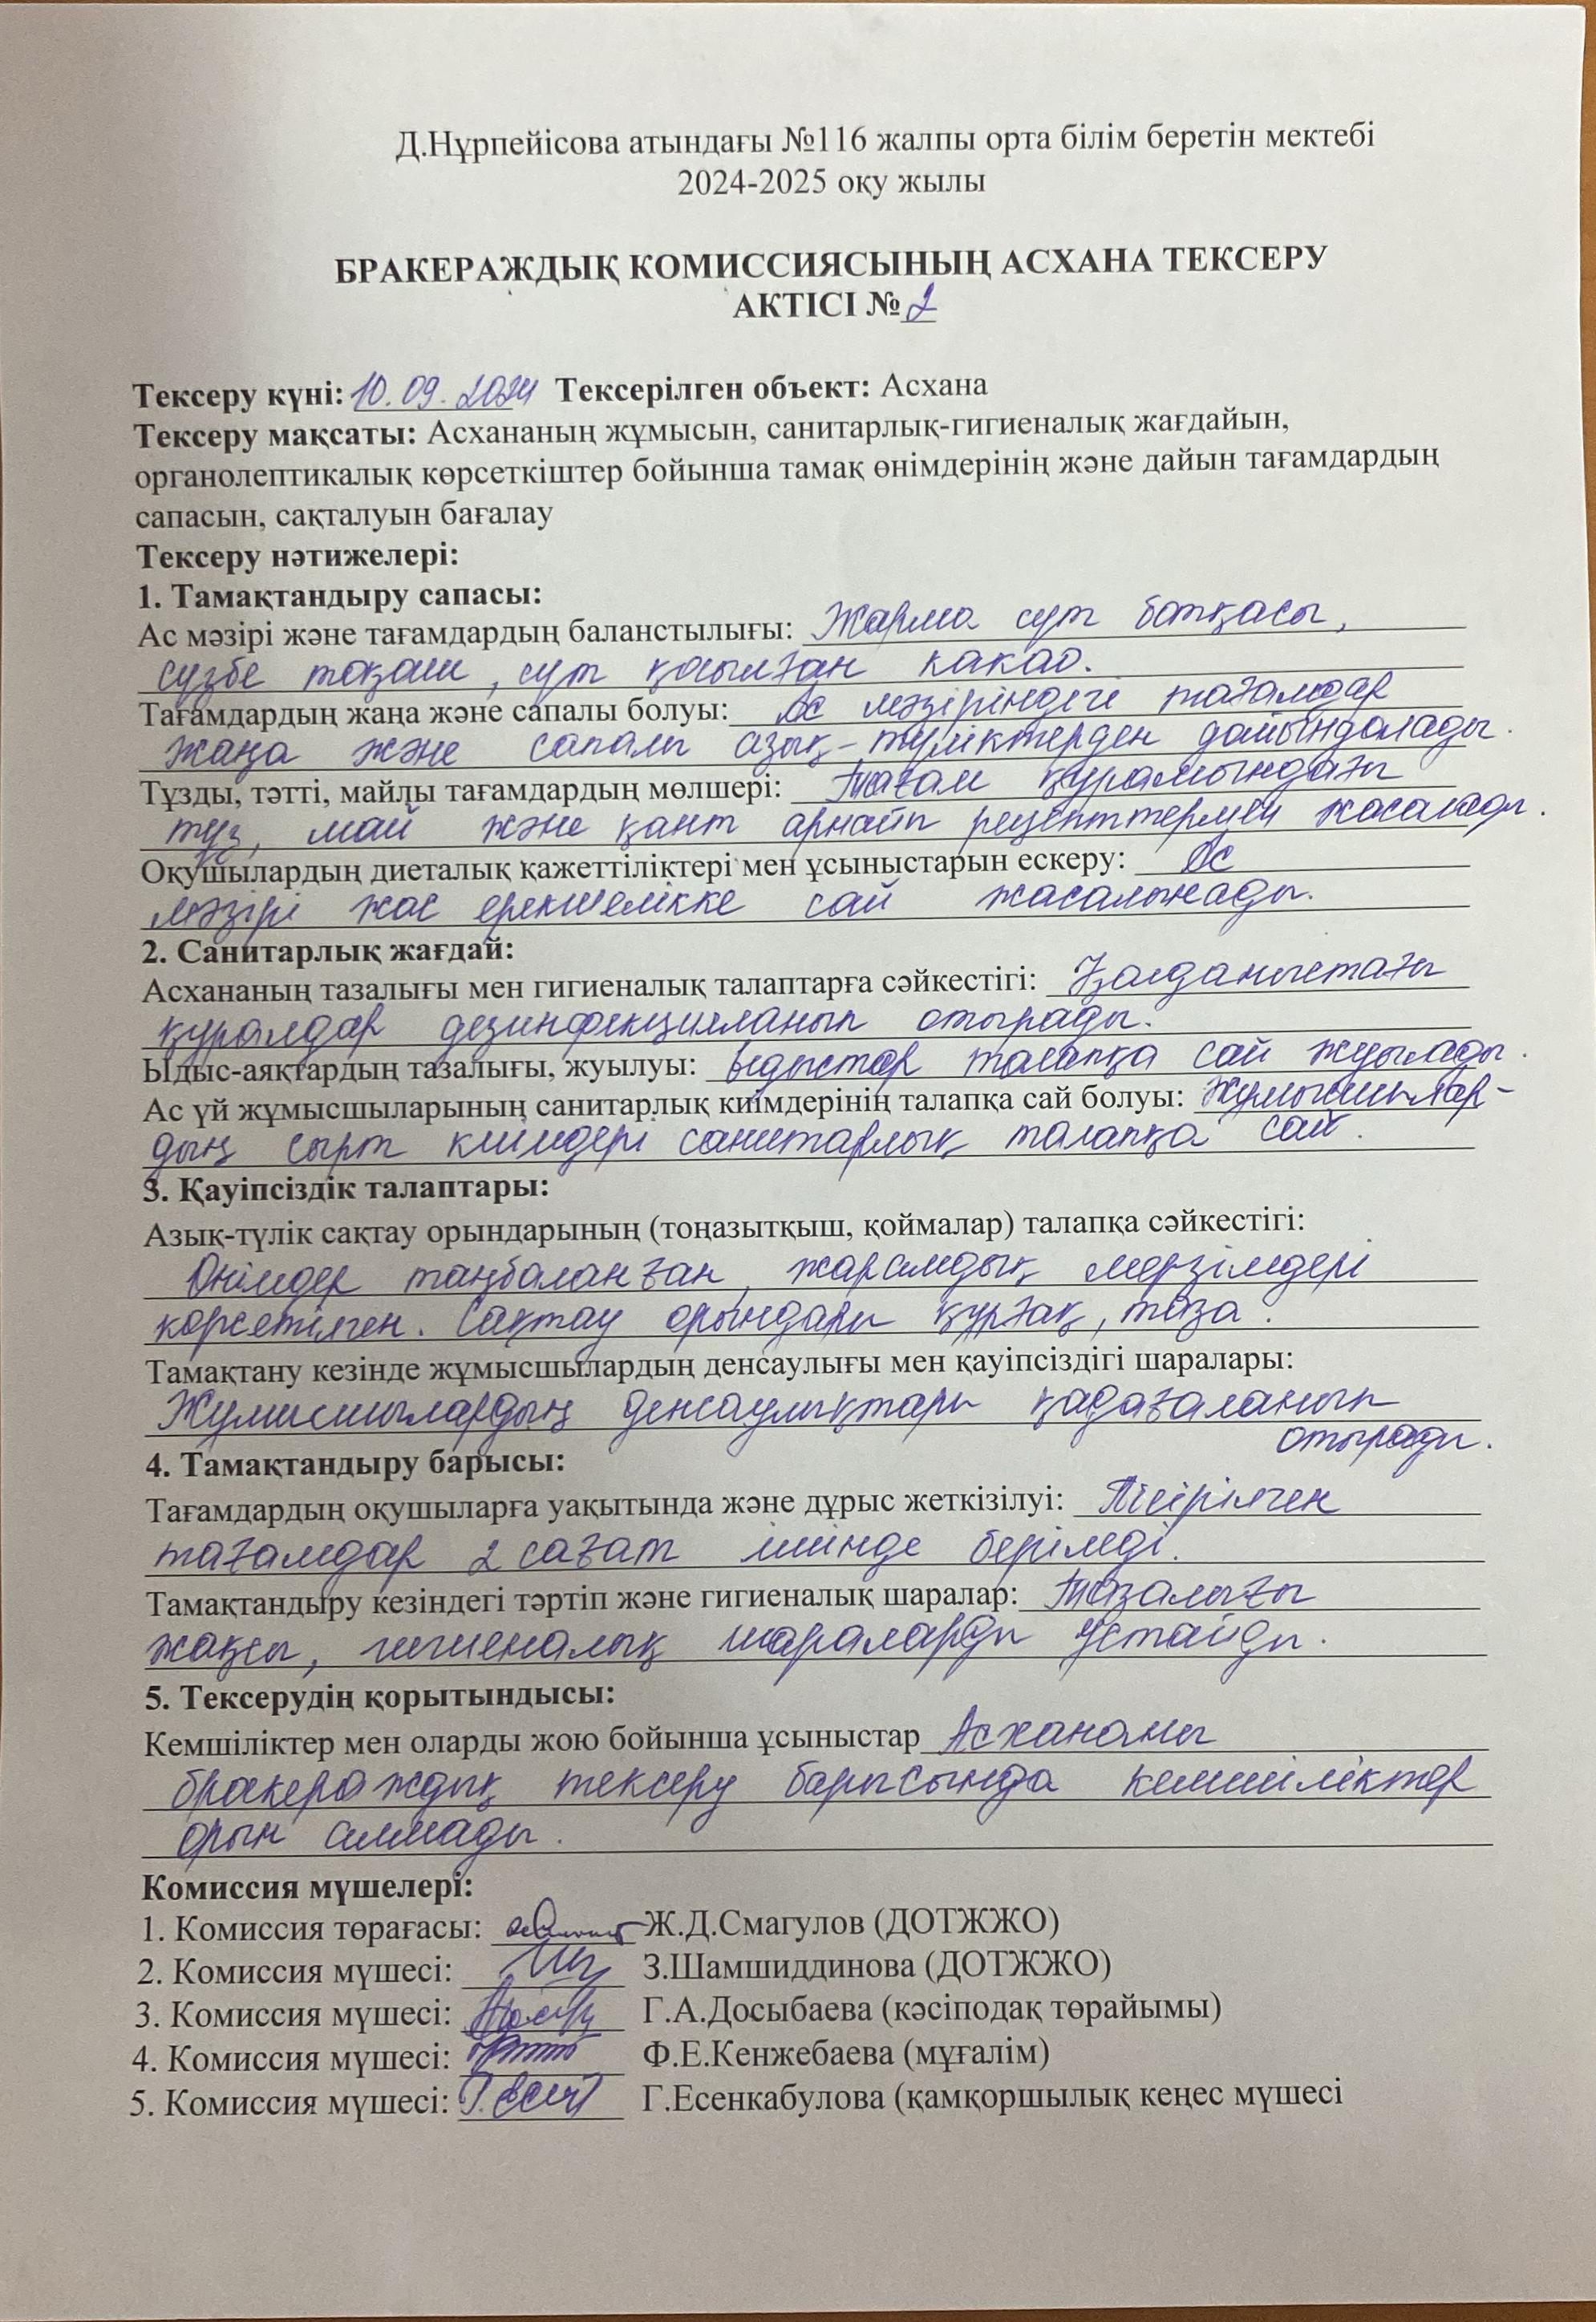 Д.Нұрпейісова атындағы №116 жалпы орта білім беретін мектебі
2024-2025 оқу жылы
БРАКЕРАЖДЫҚ КОМИССИЯСЫНЫҢ АСХАНА ТЕКСЕРУ
АКТІСІ № 2
Тексеру күні: 10.09.2024 Тексерілген объект: Асхана
Тексеру мақсаты: Асхананың жұмысын, санитарлық-гигиеналық жағдайын,
органолептикалық көрсеткіштер бойынша тамақ өнімдерінің және дайын тағамдардың
сапасын, сақталуын бағалау
Тексеру нәтижелері:
1. Тамақтандыру сапасы:
Ас мәзірі және тағамдардың баланстылығы: Жарма сүт ботқасы,
сүзбе тоқаш, сүт қосылған какао.
Тағамдардың жаңа және сапалы болуы: Ас мәзіріндегі тағамдар
жаңа және сапалы азық-түліктерден дайындалады.
Тұзды, тәтті, майлы тағамдардың мөлшері: Тағам құрамындағы
тұз, май және қант арнайы рецепттермен жасалады.
Оқушылардың диеталық қажеттіліктері мен ұсыныстарын ескеру: Ас
мәзірі жас ерекшелікке сай жасалынады.
2. Санитарлық жағдай:
Асхананың тазалығы мен гигиеналық талаптарға сәйкестігі: Қолданыстағы
құралдар дезинфекцияланып отырады.
Ыдыс-аяқтардың тазалығы, жуылуы: Ыдыстар талапқа сай жуылады.
Ас үй жұмысшыларының санитарлық киімдерінің талапқа сай болуы: Жұмысшылар-
дың сырт киімдері санитарлық талапқа сай.
3. Қауіпсіздік талаптары:
Азық-түлік сақтау орындарының (тоңазытқыш, қоймалар) талапқа сәйкестігі:
Өнімдер таңбаланған, жарамдық мерзімдері
көрсетілген. Сақтау орындары құрғақ, таза.
Тамақтану кезінде жұмысшылардың денсаулығы мен қауіпсіздігі шаралары:
Жұмысшылардың денсаулықтары қадағаланып
отырады.
4. Тамақтандыру барысы:
Тағамдардың оқушыларға уақытында және дұрыс жеткізілуі: Пісірілген
тағамдар 2 сағат ішінде беріледі.
Тамақтандыру кезіндегі тәртіп және гигиеналық шаралар: Тазалығы
жақсы, гигиеналық шараларды ұстайды.
5. Тексерудің қорытындысы:
Кемшіліктер мен оларды жою бойынша ұсыныстар Асхананы
бракераждық тексеру барысында кемшіліктер
орын алмады.
Комиссия мүшелері:
1. Комиссия төрағасы: Ж.Д.Смагулов (ДОТЖЖО)
2. Комиссия мүшесі: З.Шамшиддинова (ДОТЖЖО)
3. Комиссия мүшесі: Г.А.Досыбаева (кәсіподақ төрайымы)
4. Комиссия мүшесі: Ф.Е.Кенжебаева (мұғалім)
5. Комиссия мүшесі: Г.Есенкабулова (қамқоршылық кеңес мүшесі